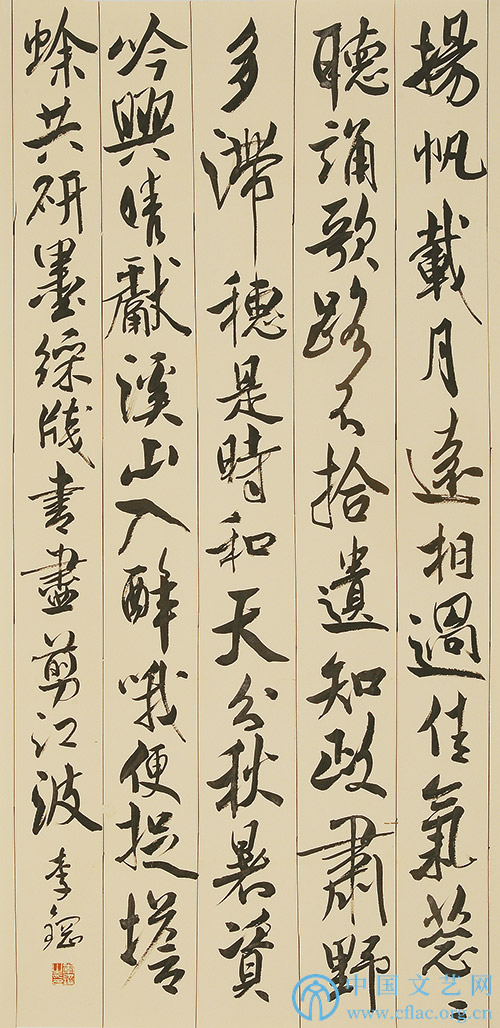 揚帆載月遠相過佳氣葱〻
聽誦歌路不拾遺知政肅野
多滯穗是時和天分秋暑資
吟興晴獻溪山入醉哦便捉蟾
蜍共研墨綵牋書盡剪江波 李
中国文艺网
www.cflac.org.cn